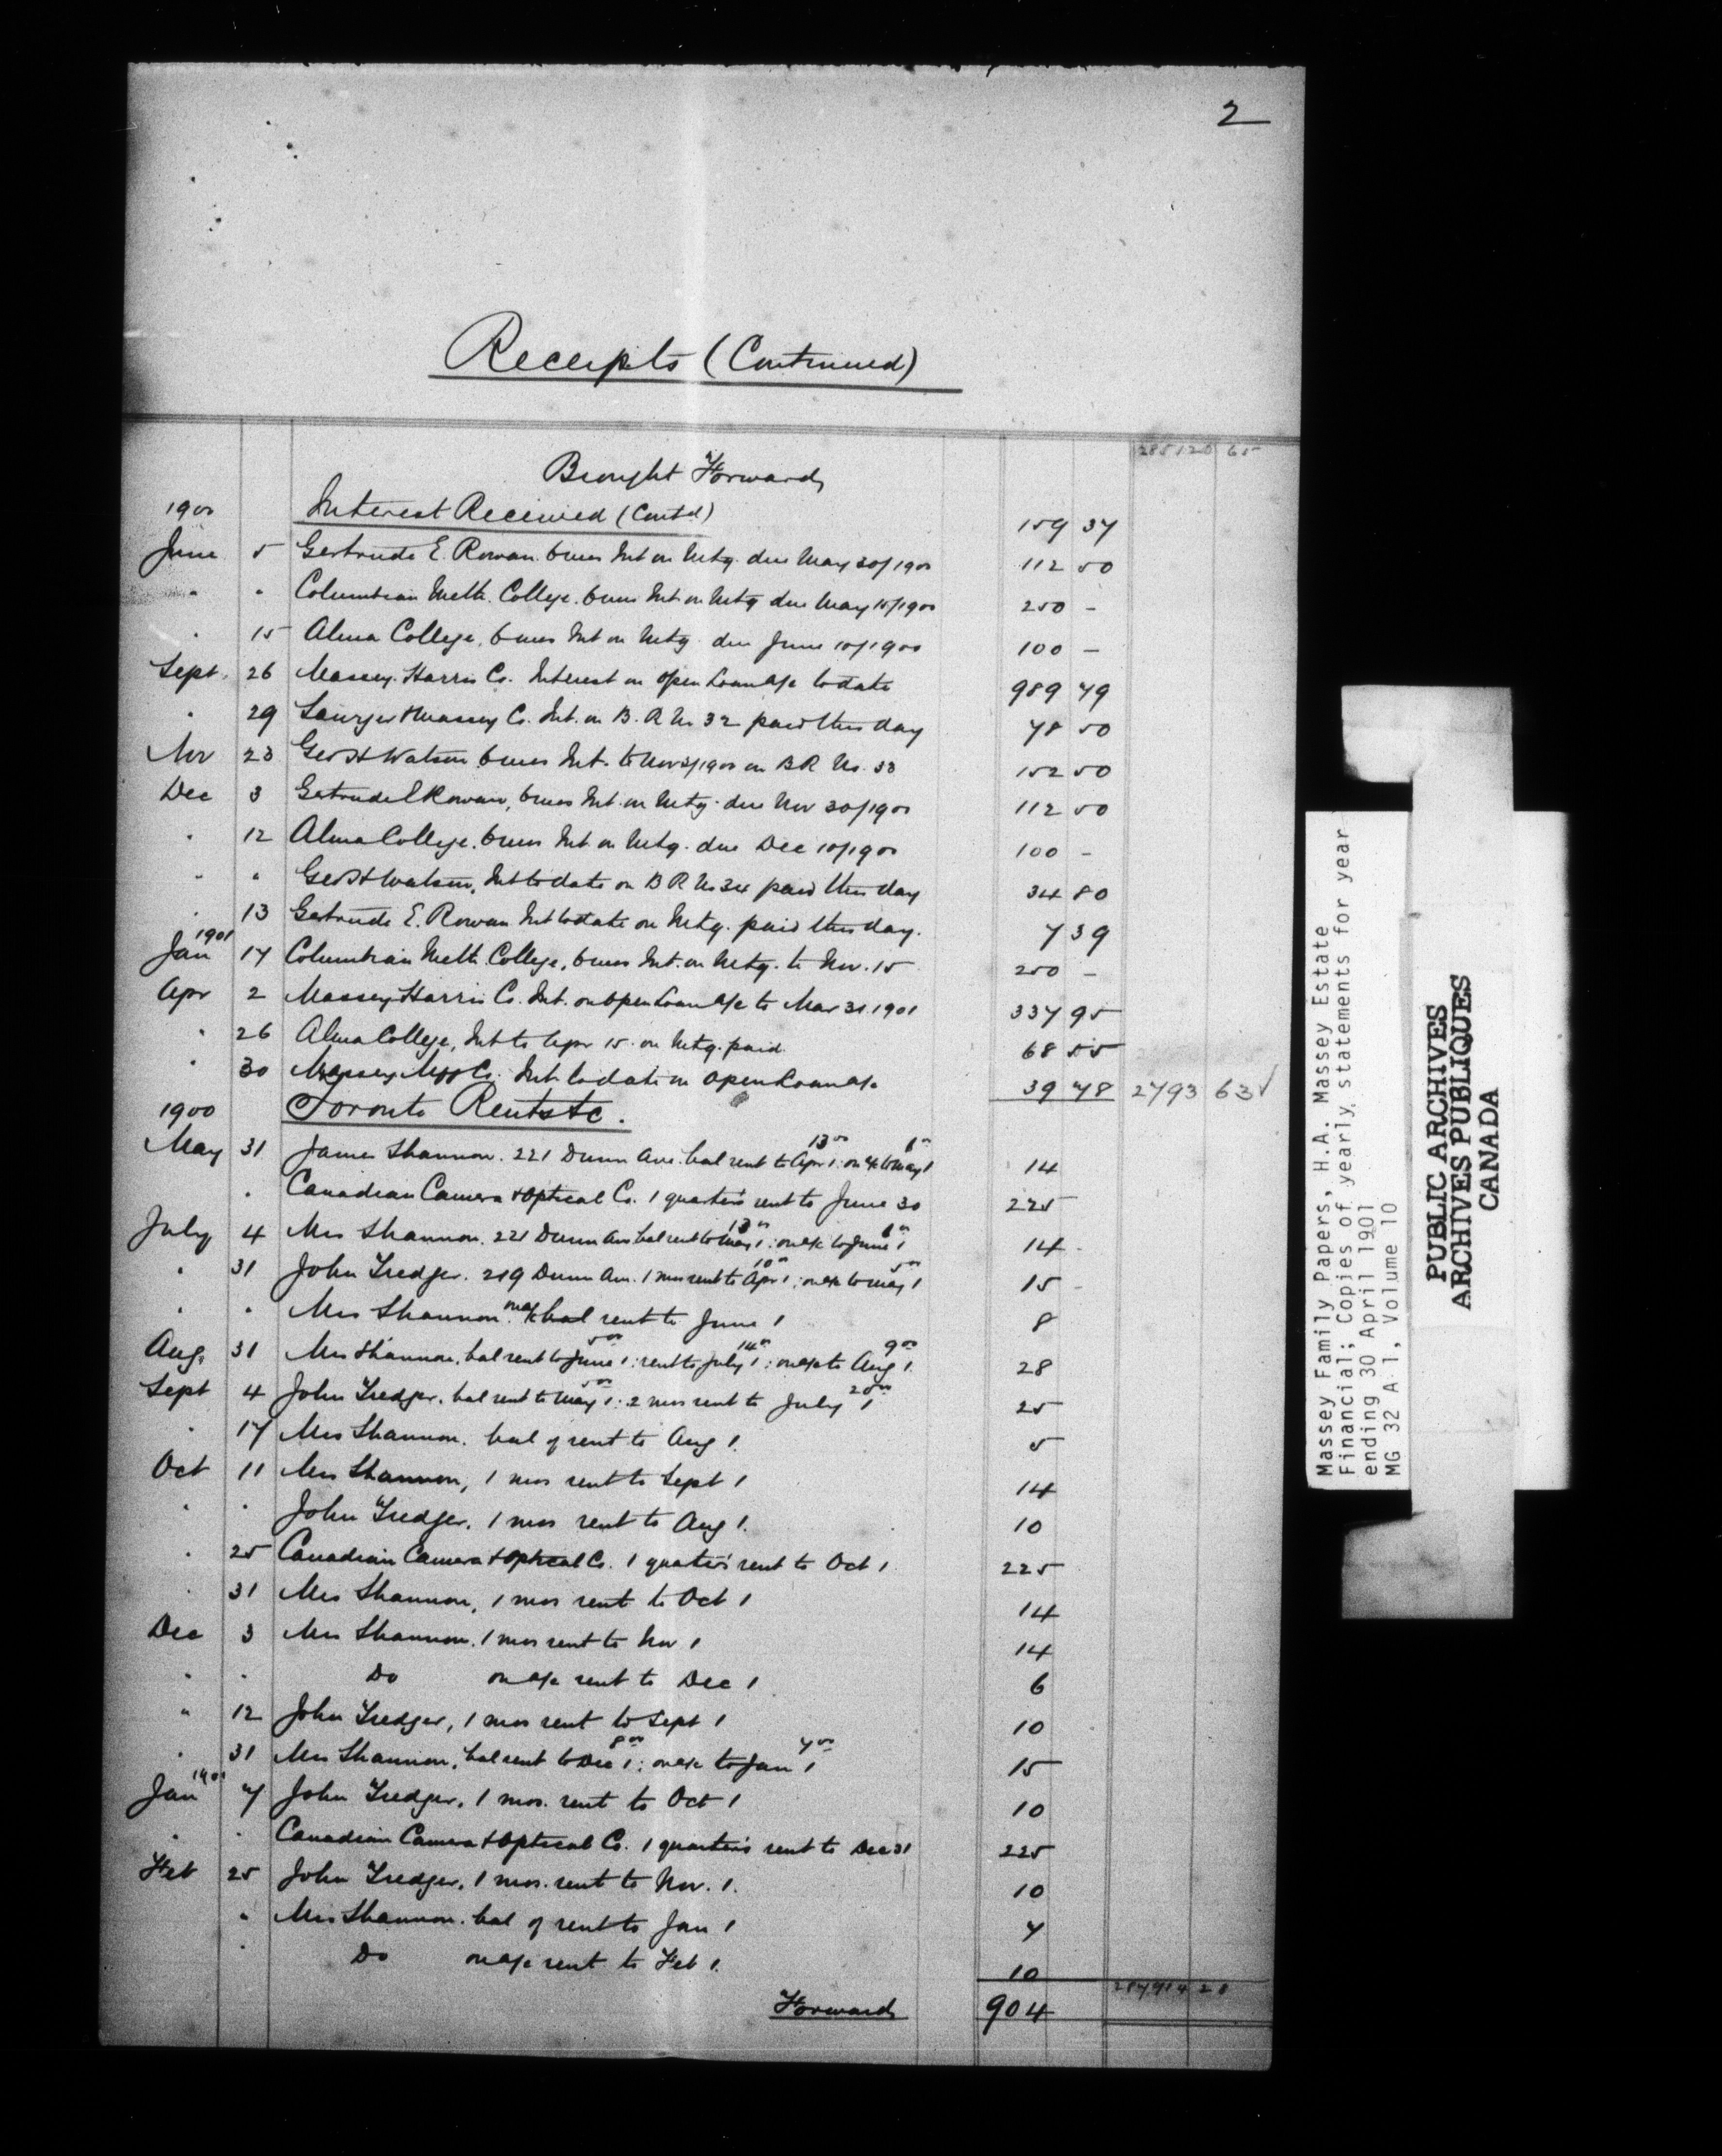 2
Receipts (Continued)
285120 65
Brought Forward
1900 Interest Received (Contd) 159 37
June 5 Gertrude E. Rowan. 6 mos Int on Mtg. due May 30/1900 112 50
" " Columbian Meth. College. 6 mos Int. on Mtg due May 15/1900 250 -
" 15 Alma College, 6 mos Int on Mtg due June 10/1900 100 -
Sept. 26 Massey-Harris Co. Interest on Open Loan a/c to date 989 79
" 29 Sawyer & Massey Co. Int. on B. R No 32 paid this day 78 50
Nov 23 Geo H Watson 6 mos Int. to Nov 2/1900 on B R No. 33 152 50
Dec 3 Gertrude E Rowan, 6 mos Int. on Mtg. due Nov 30/1900 112 50
" 12 Alma College. 6 mos Int. on Mtg. due Dec 10/1900 100 -
" " Geo H Watson, Int to date on B R No 34 paid this day 34 80
" 13 Gertrude E. Rowan Int to date on Mtg. paid this day. 7 39
1901
Jan 17 Columbian Meth. College, 6 mos Int. on Mtg. to Nov. 15 250 -
Apr 2 Massey-Harris Co. Int. on Open Loan a/c to Mar 31. 1901 337 95
" 26 Alma College, Int to Apr 15. on Mtg. paid 68 55
" 30 Massey Mfg Co. Int to date on Open Loan a/c 39 78 2793 63 √
1900 Toronto Rents &c.
May 31 James Shannon. 221 Dunn Ave. bal rent to Apr 1: 13 00 on a/c to May 1 1 00 14
" Canadian Camera & Optical Co. 1 quarter's rent to June 30 225
July 4 Mrs Shannon. 221 Dunn Ave bal rent to May 1: 13 00 on a/c to June 1 1 00 14 -
" 31 John Tredger. 219 Dunn Ave. 1 mos rent to Apr 1: 10 00 on a/c to May 1 5 00 15 -
" " Mrs Shannon. on a/c rent to June 1 8
Aug. 31 Mrs Shannon, bal rent to June 1: 5 00 rent to July 1: 14 00 on a/c to Aug 1. 9 00 28
Sept 4 John Tredger. bal rent to May 1: 5 00 2 mos rent to July 1 20 00 25
" 17 Mrs Shannon. bal of rent to Aug 1. 5
Oct 11 Mrs Shannon, 1 mos rent to Sept 1 14
" " John Tredger. 1 mos rent to Aug 1. 10
" 25 Canadian Camera & Optical Co. 1 quarter's rent to Oct 1 225
" 31 Mrs Shannon, 1 mos rent to Oct 1 14
Dec 3 Mrs Shannon. 1 mos rent to Nov 1 14
" " Do on a/c rent to Dec 1 6
" 12 John Tredger, 1 mos rent to Sept 1 10
" 31 Mrs Shannon, bal rent to Dec 1: 8 00 on a/c to Jan 1 7 00 15
1901
Jan 7 John Tredger. 1 mos. rent to Oct 1 10
" " Canadian Camera & Optical Co. 1 quarter's rent to Dec 31 225
Feb 25 John Tredger. 1 mos. rent to Nov. 1. 10
" Mrs Shannon. bal of rent to Jan 1 7
" Do on a/c rent to Feb 1. 10
Forward 904 287914 28
Massey Family Papers, H.A. Massey Estate
Financial; Copies of yearly statements for year
ending 30 April 1901
MG 32 A 1, Volume 10
PUBLIC ARCHIVES
ARCHIVES PUBLIQUES
CANADA